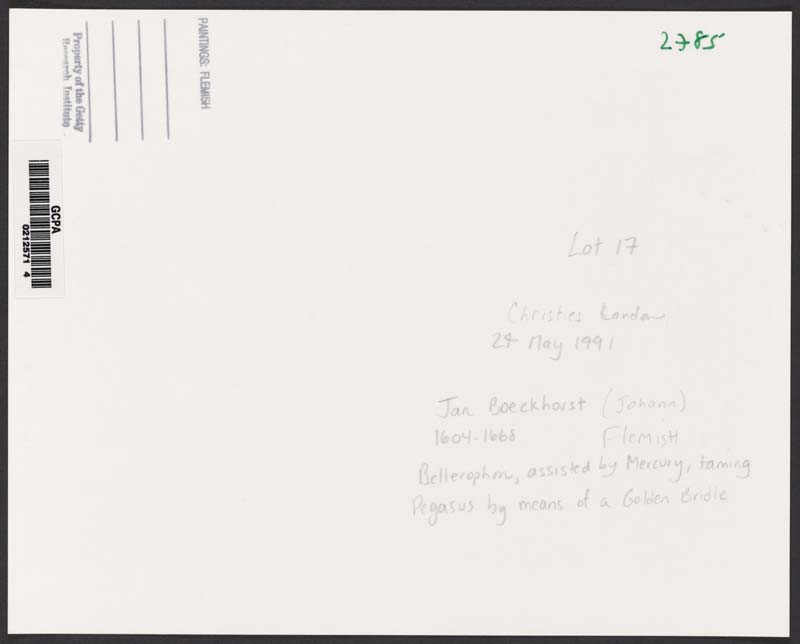 2785
PAINTINGS: FLEMISH
Property of the Getty
Research Institute
GCPA
0212571 4
Lot 17
Christies London
24 May 1991
Jan Boeckhorst (Johann)
1604-1668 Flemish
Bellerophon, assisted by Mercury, taming
Pegasus by means of a Golden Bridle